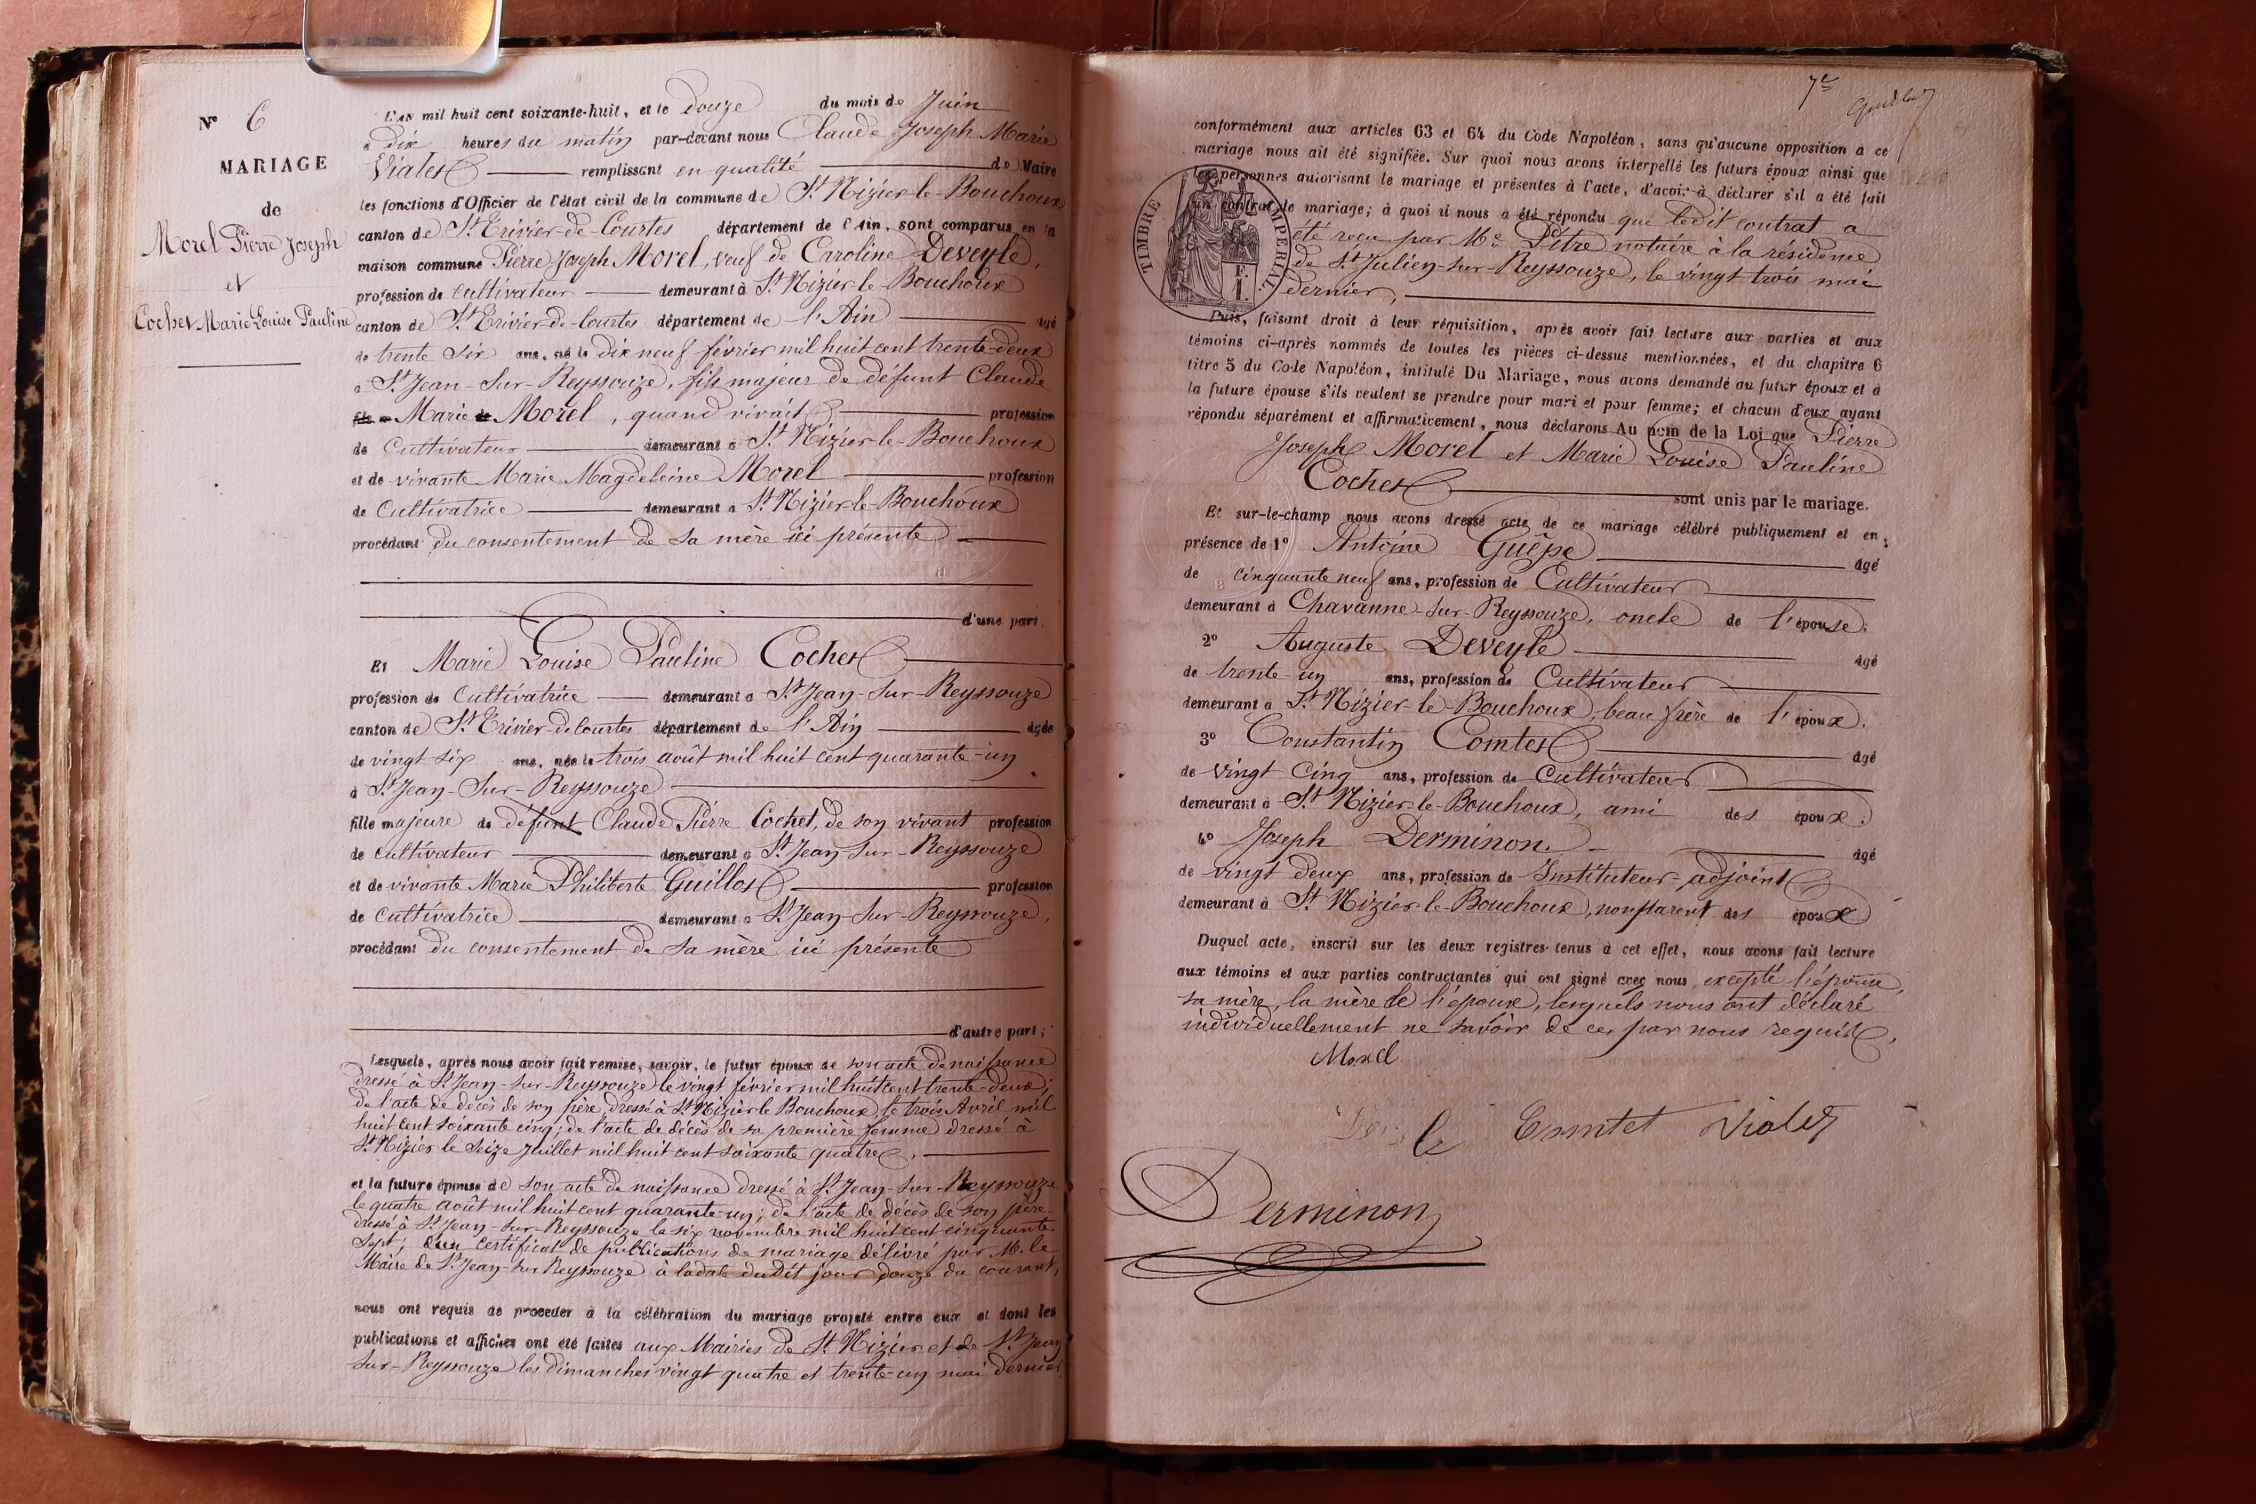 N° 6
MARIAGE
de
Morel Pierre Joseph
et
Cochet Marie Louise Pauline
L'an mil huit cent soixante-huit, et le Douze du mois de Juin
à Dix heures du matin par-devant nous Claude Joseph Marie
Vialet remplissant en qualité de Maire
les fonctions d'Officier de l'état civil de la commune de St Nizier-le-Bouchoux
canton de St Trivier-de-Courtes département de l'Ain, sont comparus en la
maison commune Pierre Joseph Morel, veuf de Caroline Deveyle,
profession de cultivateur demeurant à St Nizier-le-Bouchoux
canton de St Trivier-de-Courtes département de l'Ain âgé
de trente six ans, né le dix neuf février mil huit cent trente-deux
à St Jean-sur-Reyssouze, fils majeur de défunt Claude
Marie Morel, quand vivait profession
de Cultivateur demeurant à St Nizier-le-Bouchoux
et de vivante Marie Magdeleine Morel profession
de Cultivatrice demeurant à St Nizier-le-Bouchoux
procédant du consentement de sa mère ici présente
d'une part.
Et Marie Louise Pauline Cochet
profession de Cultivatrice demeurant à St Jean-sur-Reyssouze
canton de St Trivier-de-Courtes département de l'Ain âgée
de vingt six ans, née le trois août mil huit cent quarante-un
à St Jean-sur-Reyssouze
fille majeure de défunt Claude Pierre Cochet, de son vivant profession
de cultivateur demeurant à St Jean-sur-Reyssouze
et de vivante Marie Philiberte Guillot profession
de cultivatrice demeurant à St Jean-sur-Reyssouze,
procédant du consentement de sa mère ici présente
d'autre part;
Lesquels, après nous avoir fait remise, savoir, le futur époux de son acte de naissance
dressé à St Jean-sur-Reyssouze le vingt février mil huit cent trente-deux;
de l'acte de décès de son père, dressé à St Nizier le Bouchoux, le trois Avril mil
huit cent soixante cinq; de l'acte de décès de sa première femme dressé à
St Nizier le seize Juillet mil huit cent soixante quatre,
et la future épouse de son acte de naissance dressé à St Jean-sur-Reyssouze
le quatre août mil huit cent quarante-un; de l'acte de décès de son père
dressé à St Jean-sur-Reyssouze le six novembre mil huit cent cinquante-
sept; d'un certificat de publications de mariage délivré par M. le
Maire de St Jean-sur Reyssouze à la date dudit jour douze du courant,
nous ont requis de procéder à la célébration du mariage projeté entre eux et dont les
publications et affiches ont été faites aux Mairies de St Nizier et de St Jean
sur-Reyssouze les dimanches vingt quatre et trente-un mai dernier,
7e
conformément aux articles 63 et 64 du Code Napoléon, sans qu'aucune opposition a ce
mariage nous ait été signifiée. Sur quoi nous avons interpellé les futurs époux ainsi que
les personnes autorisant le mariage et présentes à l'acte, d'avoir à déclarer s'il a été fait
un contrat de mariage; à quoi il nous a été répondu que ledit contrat a
été reçu par Me Pitre notaire à la résidence
de St Julien-sur-Reyssouze, le vingt trois mai
dernier,
TIMBRE IMPERIAL
Puis, faisant droit à leur réquisition, après avoir fait lecture aux parties et aux
témoins ci-après nommés de toutes les pièces ci-dessus mentionnées, et du chapitre 6
titre 5 du Code Napoléon, intitulé Du Mariage, nous avons demandé au futur époux et à
la future épouse s'ils veulent se prendre pour mari et pour femme; et chacun d'eux ayant
répondu séparément et affirmativement, nous déclarons Au nom de la Loi que Pierre
Joseph Morel et Marie Louise Pauline
Cochet
sont unis par le mariage.
Et sur-le-champ nous avons dressé acte de ce mariage célébré publiquement et en
présence de 1° Antoine Guêpe âgé
de cinquante neuf ans, profession de Cultivateur
demeurant à Chavanne-sur-Reyssouze, oncle de l'épouse.
2° Auguste Deveyle âgé
de trente-un ans, profession de Cultivateur
demeurant à St Nizier-le-Bouchoux, beau frère de l'époux.
3° Constantin Comtet âgé
de vingt Cinq ans, profession de Cultivateur
demeurant à St Nizier-le-Bouchoux, ami des époux.
4° Joseph Derminon âgé
de vingt deux ans, profession de Instituteur adjoint
demeurant à St Nizier-le-Bouchoux, non parent des époux
Duquel acte, inscrit sur les deux registres tenus à cet effet, nous avons fait lecture
aux témoins et aux parties contractantes qui ont signé avec nous, excepté l'épouse,
sa mère, la mère de l'époux, lesquels nous ont déclaré
individuellement ne savoir de ce, par nous requis.
Morel
Comtet Vialet
Derminon